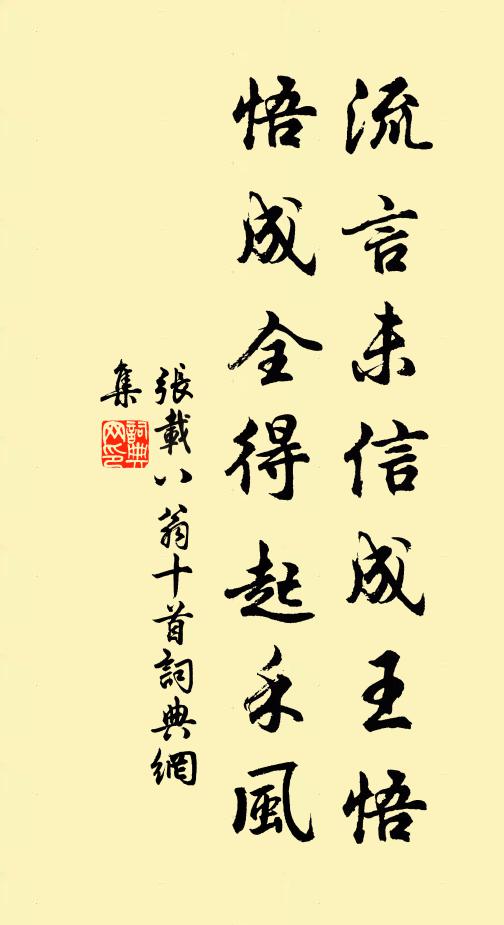 流言未信成王悟
悟成全得起禾風
張載八翁十首詞典網
集
詞典
网印